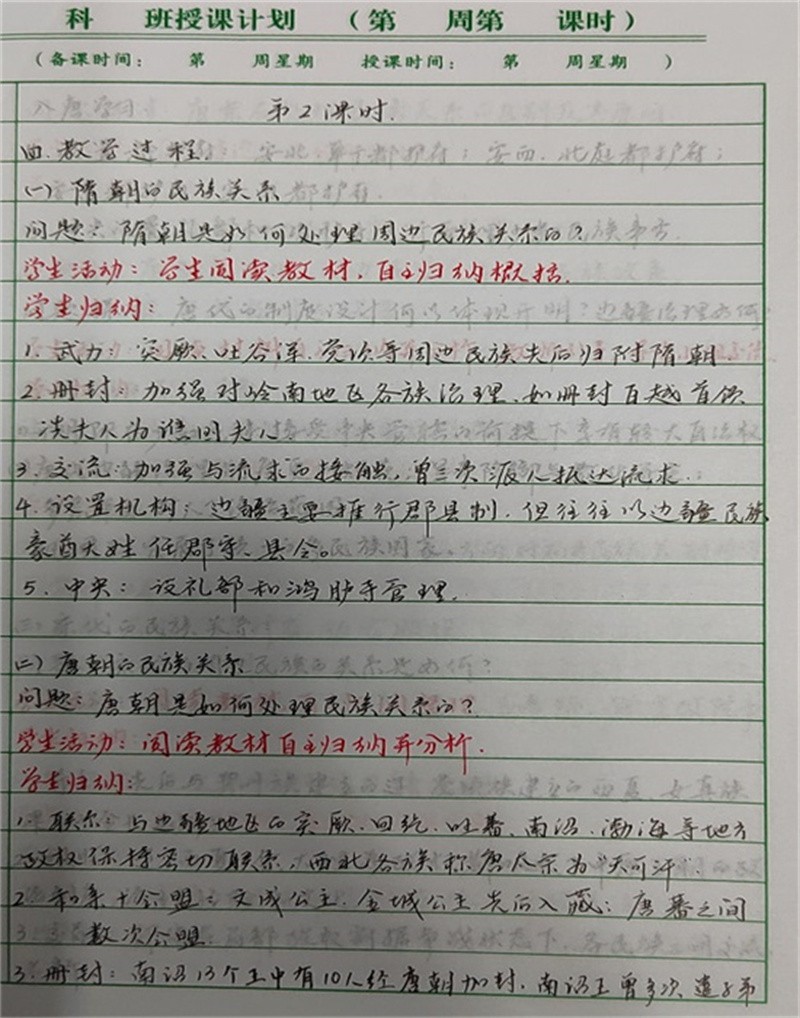 科 班授课计划 （第 周第 课时）
（备课时间： 第 周星期 授课时间： 第 周星期 ）
第2课时.
四.教学过程:
(一)隋朝的民族关系
问题：隋朝是如何处理周边民族关系的？
学生活动：学生阅读教材，自主归纳概括.
学生归纳：
1. 武力：突厥、吐谷浑、党项等周边民族先后归附隋朝.
2. 册封：加强对岭南地区各族治理，如册封百越首领
冼夫人为谯国夫人
3. 交流：加强与流求的接触，曾三次派人抵达流求.
4. 设置机构：边疆主要推行郡县制，但往往以边疆民族
豪酋大姓任郡守、县令。
5. 中央：设礼部和鸿胪寺管理.
(二)唐朝的民族关系
问题：唐朝是如何处理民族关系的？
学生活动：阅读教材自主归纳并分析.
学生归纳：
1. 联系：与边疆地区的突厥、回纥、吐蕃、南诏、渤海等地方
政权保持密切联系，西北各族称唐太宗为“天可汗”.
2. 和亲十会盟：文成公主、金城公主先后入藏；唐蕃之间
数次会盟.
3. 册封：南诏13个王中有10人经唐朝加封，南诏王曾多次遣子弟